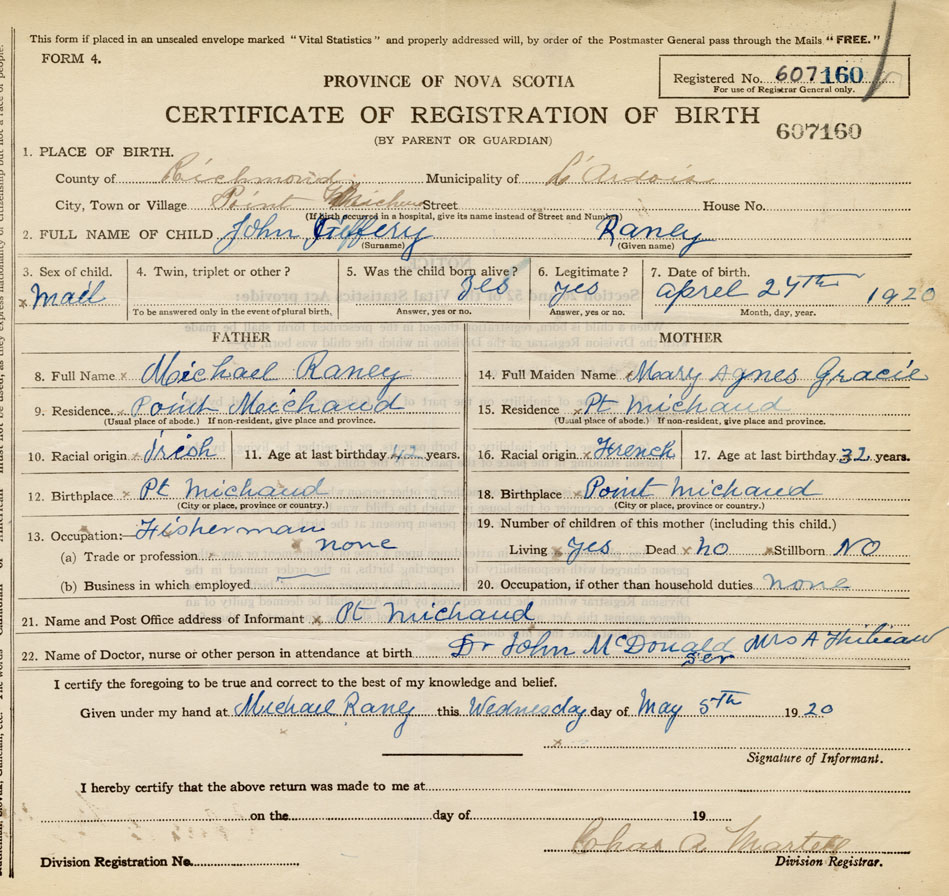 This form if placed in an unsealed envelope marked "Vital Statistics" and properly addressed will, by order of the Postmaster General pass through the Mails "FREE."
FORM 4.
Registered No. 607160
For use of Registrar General only.
PROVINCE OF NOVA SCOTIA
CERTIFICATE OF REGISTRATION OF BIRTH
607160
(BY PARENT OR GUARDIAN)
1. PLACE OF BIRTH.
County of Richmond Municipality of L'Ardois
City, Town or Village Point Michaud Street House No.
(If birth occured in a hospital, give its name instead of Street and Number)
2. FULL NAME OF CHILD John Jeffery Raney
(Surname) (Given name)
3. Sex of child. 4. Twin, triplet or other? 5. Was the child born alive? 6. Legitimate? 7. Date of birth.
x Mael yes yes April 24th 1920
To be answered only in the event of plural birth, Answer, yes or no. Answer, yes or no. Month, day, year.
FATHER MOTHER
8. Full Name x Michael Raney 14. Full Maiden Name Mary Agnes Gracie
9. Residence. x Point Michaud 15. Residence x Pt Michaud
(Usual place of abode.) If non-resident, give place and province. (Usual place of abode.) If non-resident, give place and province.
10. Racial origin x Irish 11. Age at last birthday 42 years. 16. Racial origin x French 17. Age at last birthday 32 years.
12. Birthplace x Pt Michaud 18. Birthplace x Point Michaud
(City or place, province or country.) (City or place, province or country.)
13. Occupation: Fisherman 19. Number of children of this mother (including this child.)
(a) Trade or profession x none Living x yes Dead x no x Stillborn NO
(b) Business in which employed 20. Occupation, if other than household duties. none
21. Name and Post Office address of Informant x Pt Michaud
22. Name of Doctor, nurse or other person in attendance at birth Dr John McDonald Mrs A Thibeau
ser
I certify the foregoing to be true and correct to the best of my knowledge and belief.
Given under my hand at Michael Raney this Wednesday day of May 5th 1920
x
Signature of Informant.
I hereby certify that the above return was made to me at
on the day of 19
Chas A Martell
Division Registration No. Division Registrar.